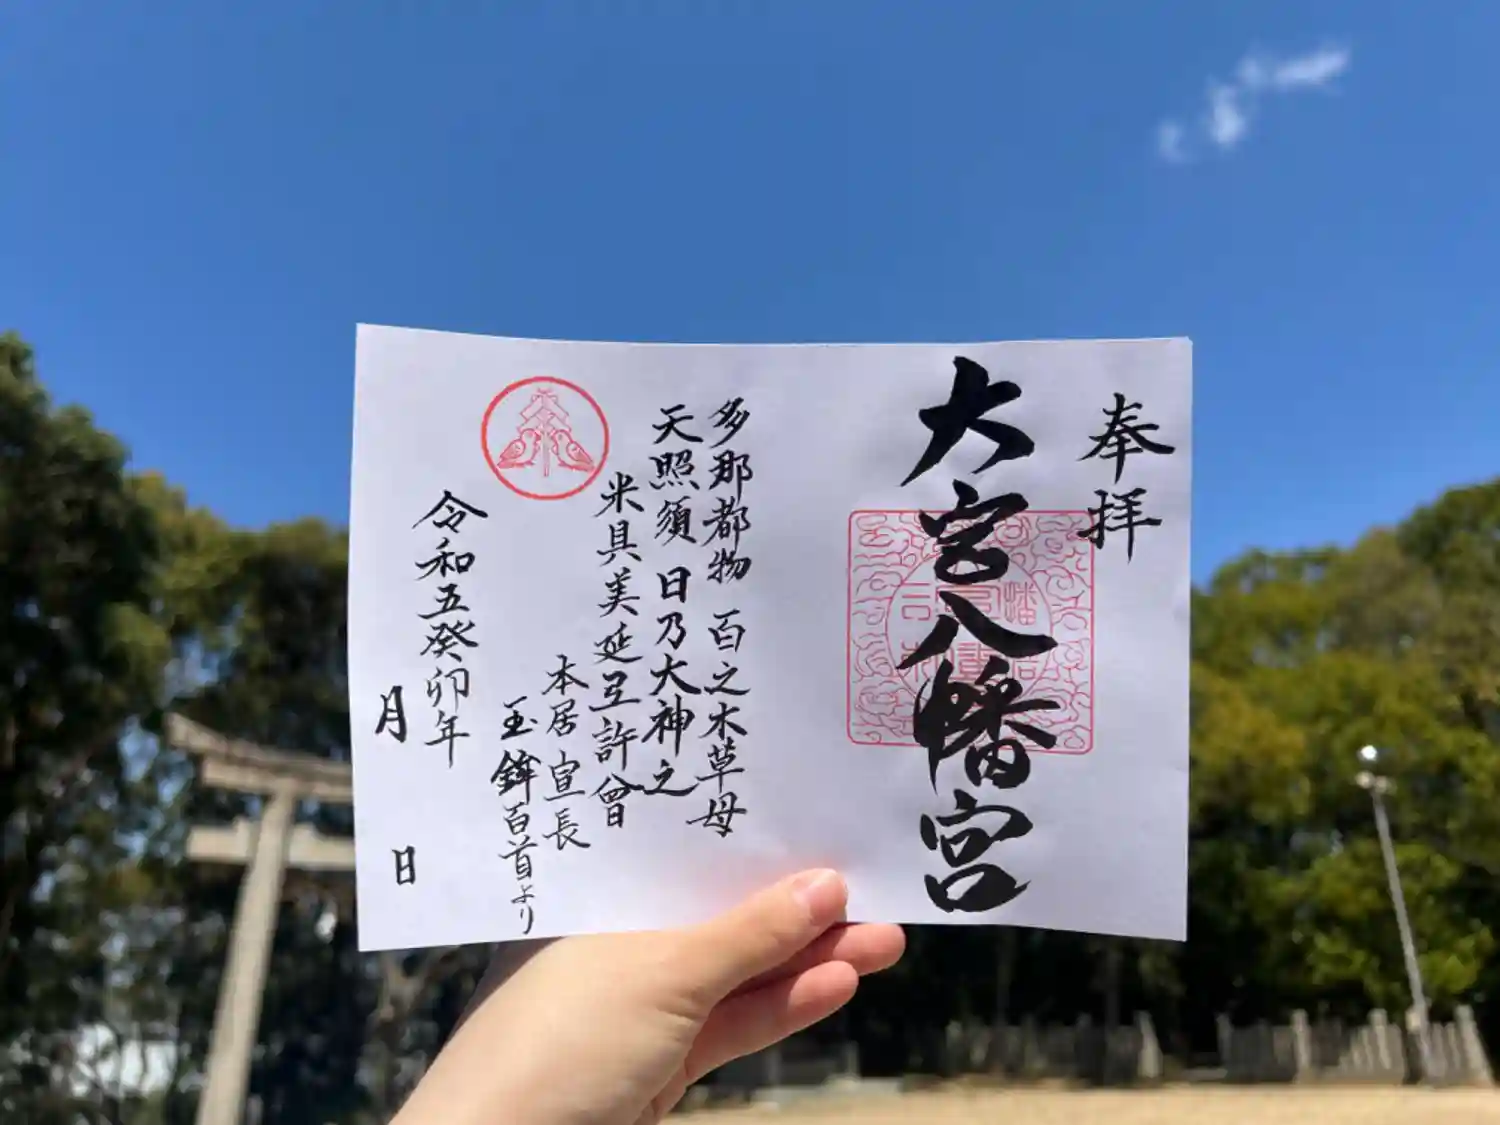 奉拝
大宮八幡宮
多那都物 百之木草母
天照須 日乃大神之
米具美延弖許曾
本居宣長
玉鉾百首より
令和五癸卯年
月 日